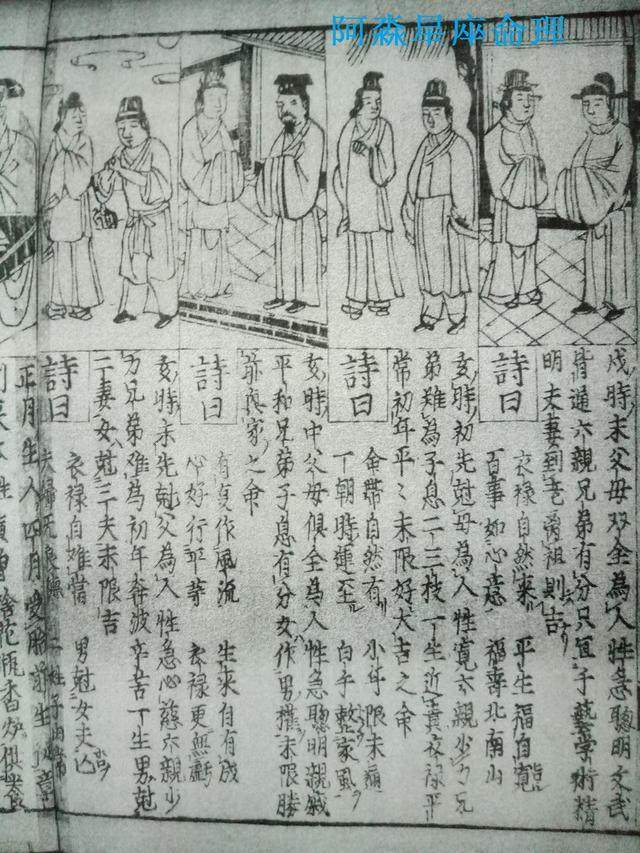 阿淼星座命理
戌時末父母双全為人性急聰明文武
皆通六親兄弟有分只宜手藝學術精
明夫妻到老離祖則吉
詩曰
衣禄自然來 平生福自寬
百事如心意 福壽北南山
亥時初先尅母為人性寬六親少力兄
弟难為子息二三枝一生近貴衣禄平
常初年平〻末限好大吉之命
詩曰
命帶自然有 小年限未
一朝時運至 白手整家風
亥時中父母俱全為人性急聰明親戚
平和兄弟子息有分女作男權末限勝
前興家之命
詩曰
有貞作風流 生來自有成
心好行平等 衣禄更無虧
亥時末先尅父為人性急心慈六親少
力兄弟难為初年奔波辛苦一生男尅
二妻女尅三夫末限吉
衣禄自难當 男尅女夫
正月生人四月受胎前生